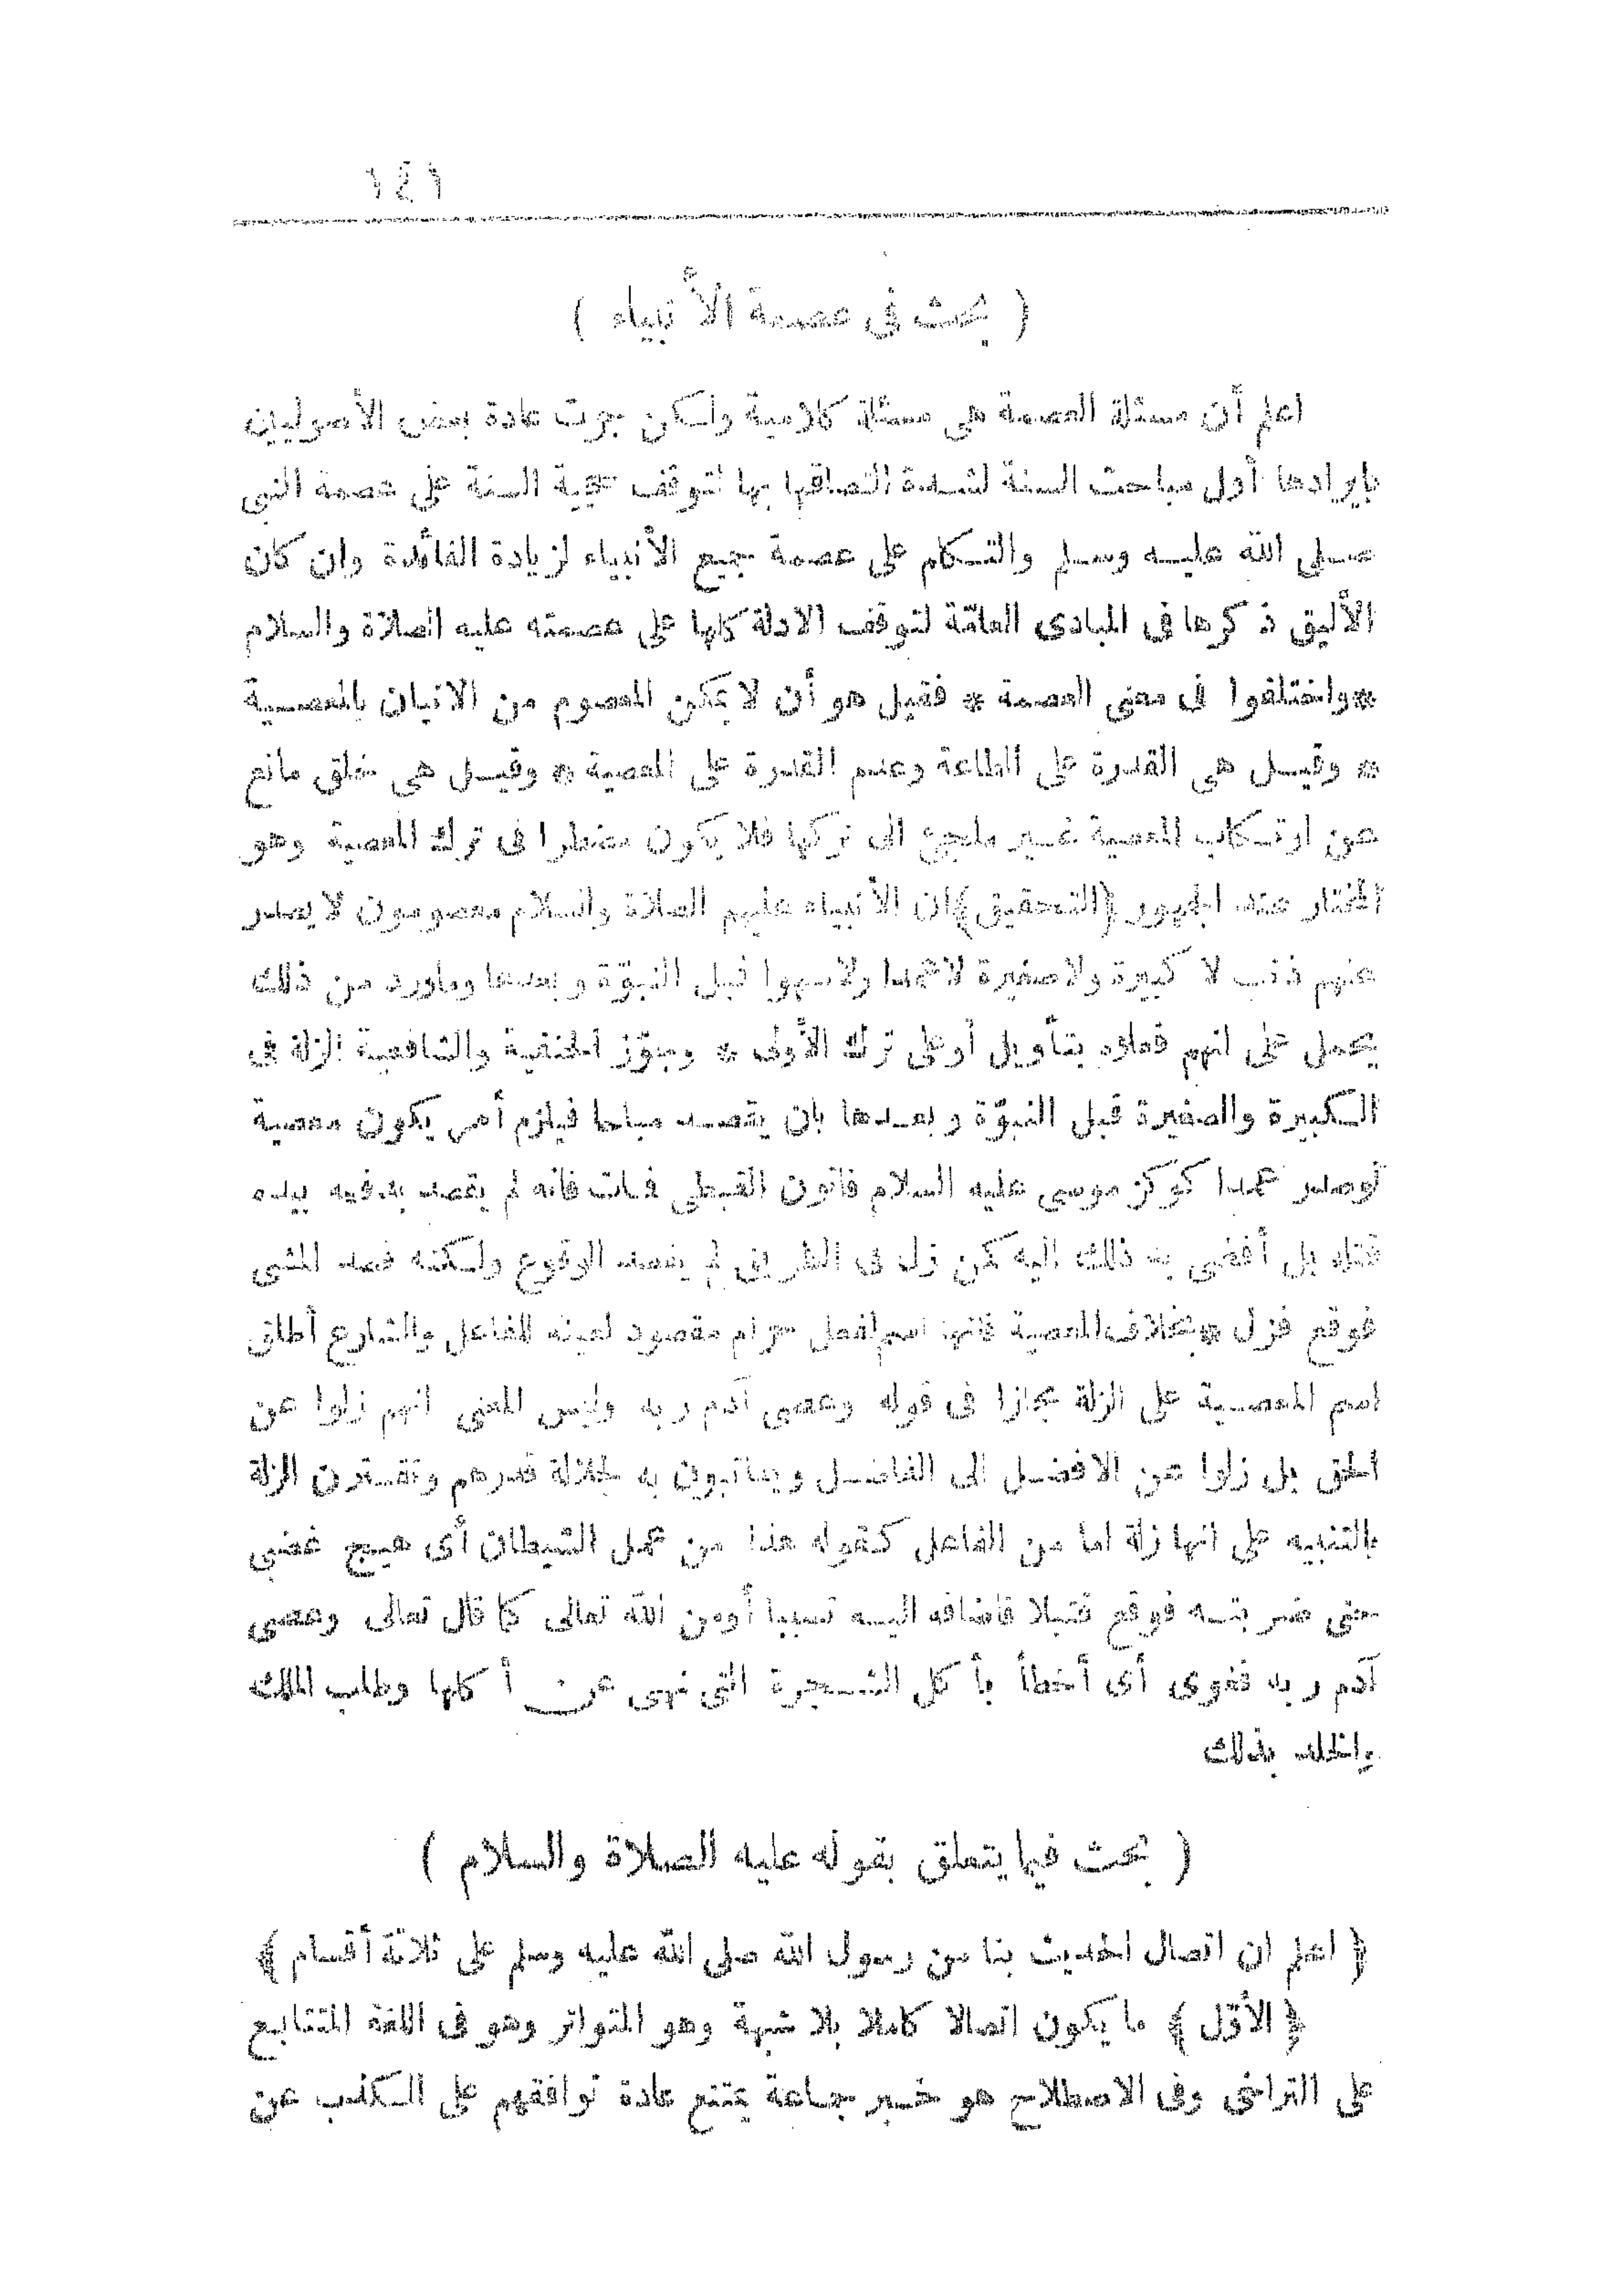 ١٤١
( بحث فى عصمة الأنبياء )
اعلم أن مسئلة العصمة هى مسئلة كلامية ولكن جرت عادة بعض الأصوليين
بايرادها أول مباحث السنة لشدة التصاقها بها لتوقف حجية السنة على عصمة النبى
صلى الله عليه وسلم والتكلم على عصمة جميع الأنبياء لزيادة الفائدة وان كان
الأليق ذكرها فى المبادى العامّة لتوقف الادلة كلها على عصمته عليه الصلاة والسلام
*واختلفوا فى معنى العصمة * فقيل هو أن لا يمكن المعصوم من الاتيان بالمعصية
* وقيل هى القدرة على الطاعة وعدم القدرة على المعصية * وقيل هى خلق مانع
عن ارتكاب المعصية غير ملجئ الى تركها فلا يكون مضطرا فى ترك المعصية وهو
المختار عند الجمهور ﴿التحقيق﴾ ان الأنبياء عليهم الصلاة والسلام معصومون لا يصدر
عنهم ذنب لا كبيرة ولا صغيرة لا عمدا ولا سهوا قبل النبوّة وبعدها وماورد من ذلك
يحمل على انهم فعلوه بتأويل أو على ترك الأولى * وجوّز الحنفية والشافعية الزلة فى
الكبيرة والصغيرة قبل النبوّة وبعدها بان يقصد مباحا فيلزم أمر يكون معصية
لو صدر عمدا كوكز موسى عليه السلام فاتون القبطى فمات فانه لم يقصد بدفيه بيده
قتله بل أفضى به ذلك اليه كمن زل فى الطريق لم يقصد الوقوع ولكنه قصد المشى
فوقع فزل *بخلاف المعصية فانها اسم لفعل حرام مقصود لعينه للفاعل والشارع أطلق
اسم المعصية على الزلة مجازا فى قوله وعصى آدم ربه وليس المعنى انهم زلوا عن
الحق بل زلوا عن الافضل الى الفاضل ويعاتبون به لجلالة قدرهم وتقترن الزلة
بالتنبيه على انها زلة اما من الفاعل كقوله هذا من عمل الشيطان أى هيج غضبى
حتى ضربته فوقع قتيلا فاضافه اليه تسببا أو من الله تعالى كما قال تعالى وعصى
آدم ربه فغوى أى أخطأ بأكل الشجرة التى نهى عن أكلها وطلب الملك
والخلد بذلك
( بحث فيما يتعلق بقوله عليه الصلاة والسلام )
﴿ اعلم ان اتصال الحديث بنا من رسول الله صلى الله عليه وسلم على ثلاثة أقسام ﴾
﴿ الأوّل ﴾ ما يكون اتصالا كاملا بلا شبهة وهو المتواتر وهو فى اللغة المتتابع
على التراخى وفى الاصطلاح هو خبر جماعة يمتنع عادة توافقهم على الكذب عن